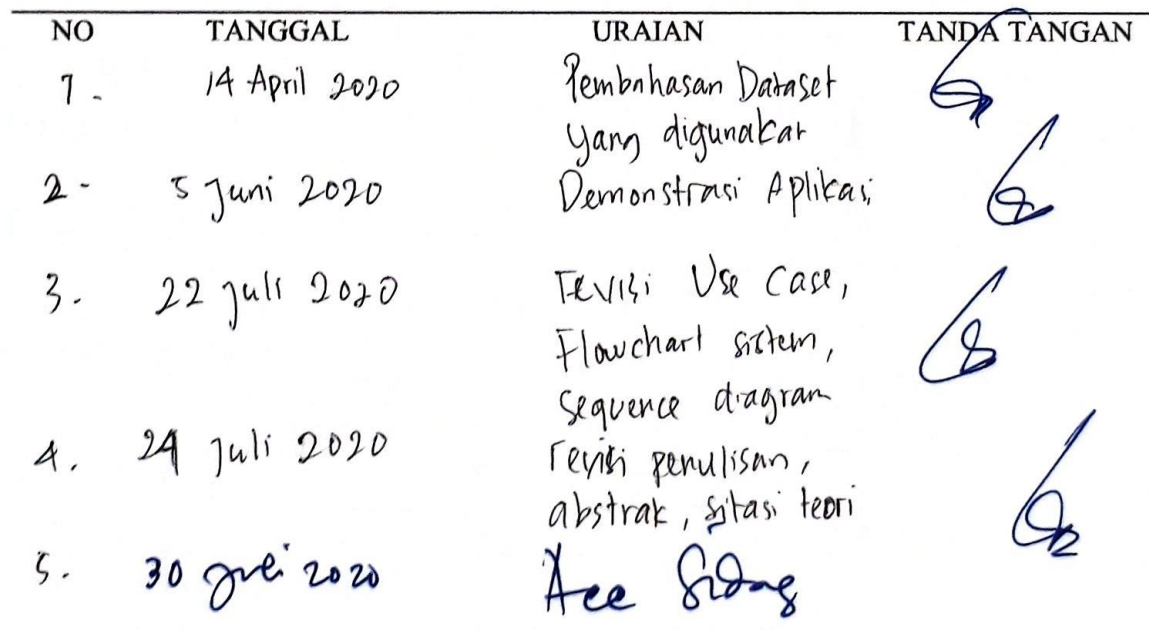 NO TANGGAL URAIAN TANDA TANGAN
1. 14 April 2020 Pembahasan Dataset
yang digunakan
2- 5 Juni 2020 Demonstrasi Aplikasi
3. 22 Juli 2020 revisi Use Case,
Flowchart sistem,
sequence diagram
4. 24 Juli 2020 revisi penulisan,
abstrak, sitasi teori
5. 30 Juli 2020 Acc Sidang